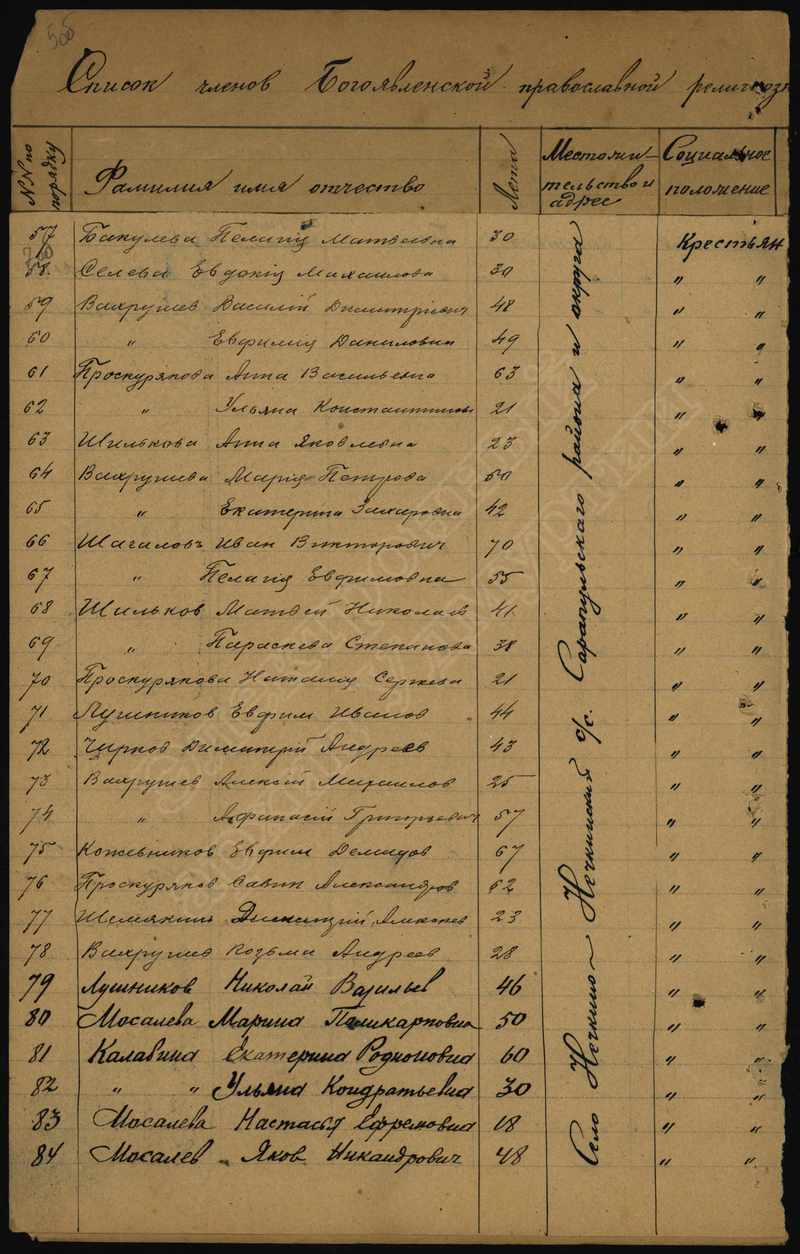 Список членов Богоявленской православной религиозн
NN по порядку | Фамилия имя отчество | Лета | Местожительство и адрес | Социальное положение
57 Бакулева Пелагія Матвеевна 30 Крестьян
58. Селева Евдокія Михаилова 30 " "
59 Вахрушев Василій Димитріевич 48 " "
60 " Евфимія Даниловна 49 " "
61 Проскурякова Анна Васильевна 63 " "
62 " Ульяна Константинов 21 " "
63 Шилькова Анна Яковлевна 23 " "
64 Вахрушева Марія Петрова 50 " "
65 " Екатерина Захаровна 42 " "
66 Шагаловъ Иван Викторович 70 " "
67 " Пелагія Евфимовна 55 " "
68 Шильков Матвей Николаев 41 " "
69 " Параскева Степанова 38 " "
70 Проскурякова Наталия Сергеева 21 " "
71 Лушников Евфим Иванов 44 " "
72 Чирков Димитрий Андреев 43 " "
73 Вахрушев Алексій Михаилов 25 " "
74 " Афанасій Григорьевич 57 " "
75 Кожевников Евфим Демидов 67 " "
76 Проскуряков Савин Александров 62 " "
77 Шемякин Димитрий 23 " "
78 Вахрушев Козьма Андреев 28 " "
79 Лушников Николай Васильев 46 " "
80 Мосалева Марина Поликарповна 50 " "
81 Калабина Екатерина Родионовна 60 " "
82 " " Ульяна Кондратьевна 30 " "
83 Мосалева Настасья Ефремовна 18 " "
84 Мосалев Яков Никандрович 48 " "
Село Нечкино – Нечкинский с/с. Сарапульскаго района и округа